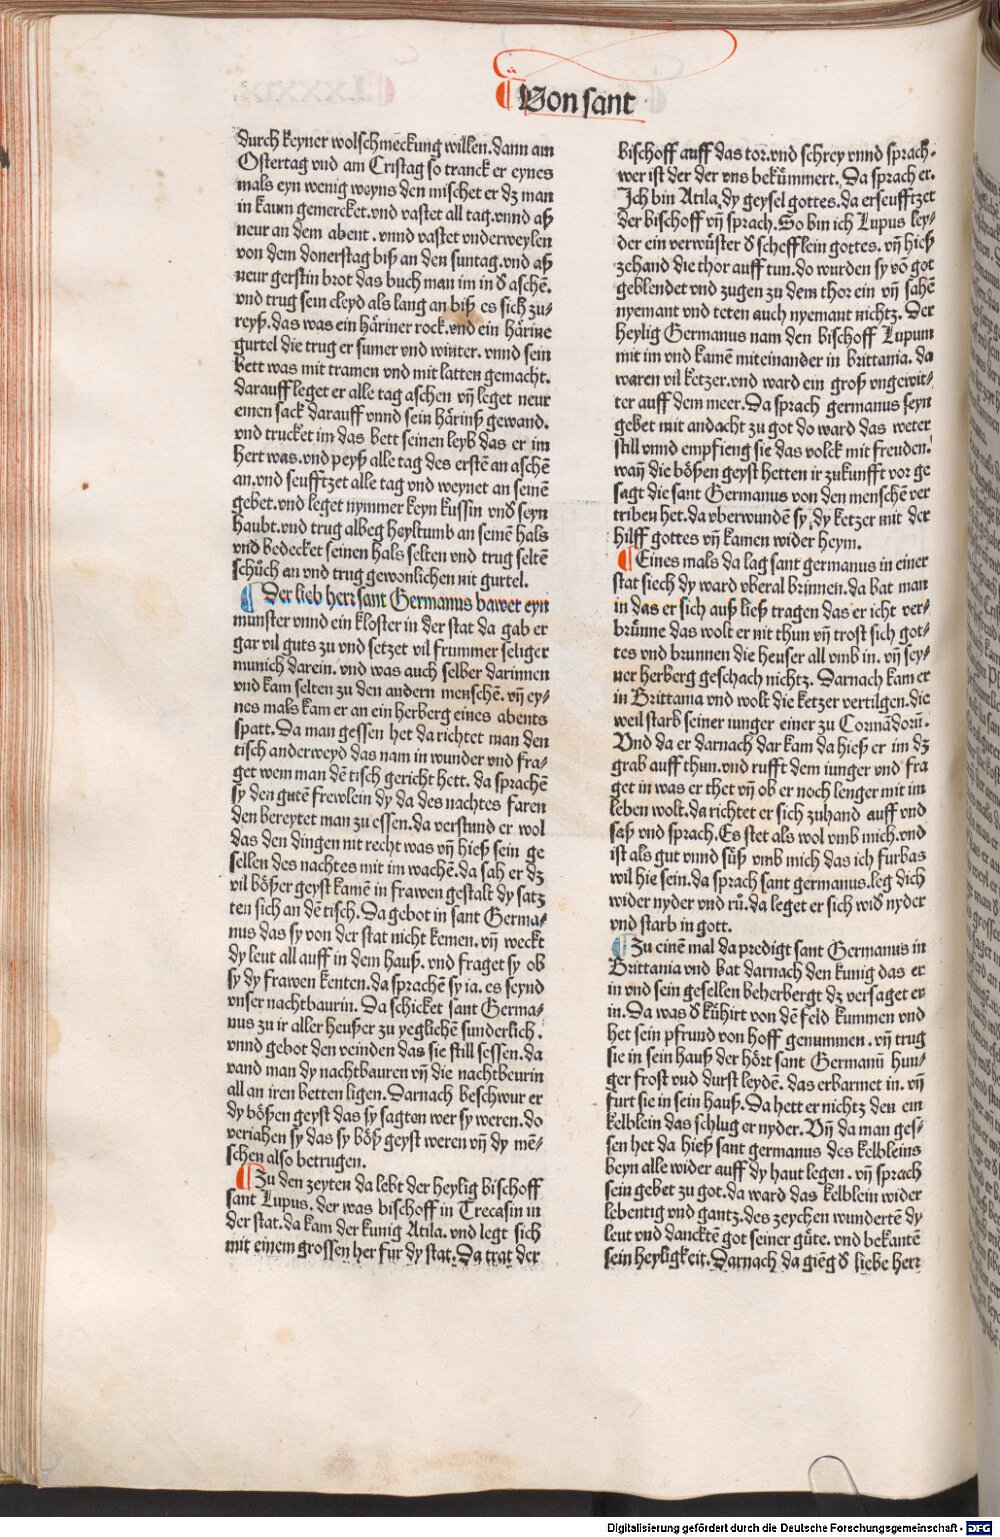 Von sant
durch keyner wolschmeckung willen. dann am
Ostertag vnd am Cristag so tranck er eynes
mals eyn wenig weyns den mischet er dz man
in kaum gemercket. vnd vastet all tag. vnnd aß
neur an dem abent. vnnd vastet vnderweylen
von dem donerstag biß an den suntag. vnd aß
neur gerstin brot das buch man im in d̕ aschē.
vnd trug sein cleyd als lang an biß es sich zu-
reyß. das was ein håriner rock. vnd ein hårine
gurtel die trug er sumer vnd winter. vnnd sein
bett was mit tramen vnd mit latten gemacht.
darauff leget er alle tag aschen vñ leget neur
einen sack darauff vnnd sein hårinß gewand.
vnd trucket im das bett seinen leyb das er im
hert was. vnd peyß alle tag des erstē an aschē
an. vnd seufftzet alle tag vnd weynet an seinē
gebet. vnd leget nymmer keyn kussin vnd̕ seyn
haubt. vnd trug albeg heyltumb an seinē hals
vnd bedecket seinen hals selten vnd trug seltē
schůch an vnd trug gewonlichen nit gurtel.
Der lieb herr sant Germanus bawet eyn
munster vnnd ein kloster in der stat da gab er
gar vil guts zu vnd setzet vil frummer seliger
munich darein. vnd was auch selber darinnen
vnd kam selten zu den andern menschē. vñ ey-
nes mals kam er an ein herberg eines abents
spatt. Da man gessen het da richtet man den
tisch anderweyd das nam in wunder vnd fra-
get wem man dē tisch gericht hett. da sprachē
sy den gutē frewlein dy da des nachtes faren
den bereytet man zu essen. da verstund er wol
das den dingen nit recht was vñ hieß sein ge
sellen des nachtes mit im wachē. da sah er dz
vil bößer geyst kamē in frawen gestalt dy satz
ten sich an dē tisch. Da gebot in sant Germa-
nus das sy von der stat nicht kemen. vñ weckt
dy leut all auff in dem hauß. vnd fraget sy ob
sy dy frawen kenten. da sprachē sy ia. es seynd
vnser nachtbaurin. Da schicket sant Germa-
nus zu ir aller heußer zu yeglichē sunderlich.
vnnd gebot den veinden das sie still sessen. da
vand man dy nachtbauren vñ die nachtbeurin
all an iren betten ligen. Darnach beschwur er
dy bößen geyst das sy sagten wer sy weren. do
veriahen sy das sy böß geyst weren vñ dy mē-
schen also betrugen.
Zu den zeyten da lebt der heylig bischoff
sant Lupus. der was bischoff in Trecasin in
der stat. da kam der kunig Atila. vnd legt sich
mit einem grossen her fur dy stat. Da trat der
bischoff auff das tor. vnd schrey vnnd sprach.
wer ist der der vns bekům̈mert. Da sprach er.
Ich bin Atila dy geysel gottes. da erseufftzet
der bischoff vñ sprach. So bin ich Lupus ley-
der ein verwůster d̕ schefflein gottes. vñ hieß
zehand die thor auff tun. do wurden sy vō got
geblendet vnd zugen zu dem thor ein vñ sahē
nyemant vnd teten auch nyemant nichtz. Der
heylig Germanus nam den bischoff Lupum
mit im vnd kamē miteinander in brittania. da
waren vil ketzer. vnd ward ein groß vngewit-
ter auff dem meer. Da sprach germanus seyn
gebet mit andacht zu got do ward das weter
still vnnd empfieng sie das volck mit freuden.
wañ die bößen geyst hetten ir zukunfft vor ge
sagt die sant Germanus von den menschē ver
triben het. da vberwundē sy dy ketzer mit der
hilff gottes vñ kamen wider heym.
Eines mals da lag sant germanus in einer
stat siech dy ward vberal brinnen. da bat man
in das er sich auß ließ tragen das er icht ver-
brůnne das wolt er nit thun vñ trost sich got-
tes vnd brunnen die heuser all vmb in. vñ sey-
ner herberg geschach nichtz. Darnach kam er
in Brittania vnd wolt die ketzer vertilgen. die
weil starb seiner iunger einer zu Cormādorū.
Vnd da er darnach dar kam da hieß er im dz
grab auff thun. vnd rufft dem iunger vnd fra
get in was er thet vñ ob er noch lenger mit im
leben wolt. da richtet er sich zuhand auff vnd
saß vnd sprach. Es stet als wol vmb mich. vnd
ist als gut vnnd sůß vmb mich das ich furbas
wil hie sein. da sprach sant germanus. leg dich
wider nyder vnd rů. da leget er sich wid̕ nyder
vnd starb in gott.
Zu einē mal da predigt sant Germanus in
Brittania vnd bat darnach den kunig das er
in vnd sein gesellen beherbergt dz versaget er
in. Da was d̕ kůhirt von dē feld kummen vnd
het sein pfrund von hoff genummen. vñ trug
sie in sein hauß der hört sant Germanū hun-
ger frost vnd durst leydē. das erbarmet in. vñ
furt sie in sein hauß. Da hett er nichtz den ein
kelblein das schlug er nyder. Vñ da man ges-
sen het da hieß sant germanus des kelbleins
beyn alle wider auff dy haut legen. vñ sprach
sein gebet zu got. da ward das kelblein wider
lebentig vnd gantz. des zeychen wundertē dy
leut vnd dancktē got seiner gůte. vnd bekantē
sein heyligkeit. Darnach da giēg d̕ liebe herr
Digitalisierung gefördert durch die Deutsche Forschungsgemeinschaft - DFG